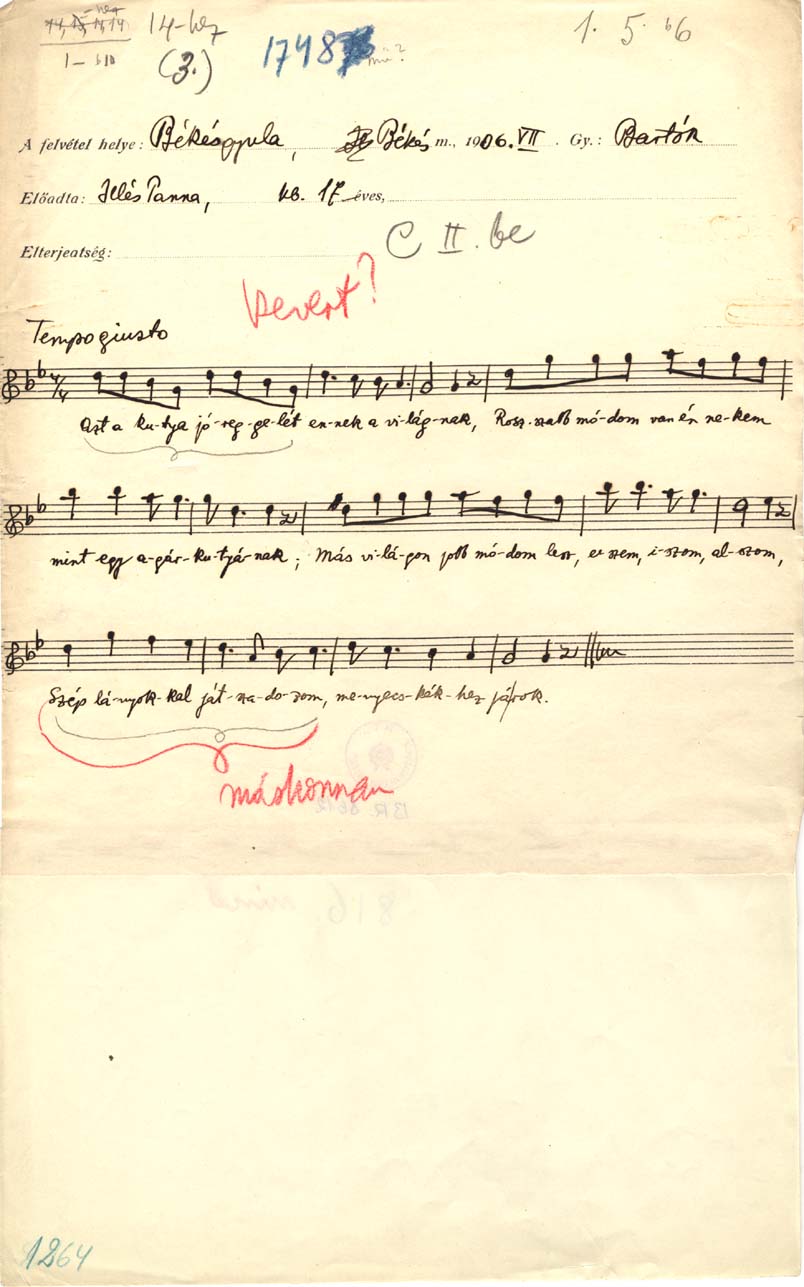 14-hez
1. 5. b6
1 — b10
(3.)
1748
A felvétel helye: Békésgyula, Békés m., 1906. VII. Gy.: Bartók
Előadta: Illés Panna, kb. 17 éves,
Elterjeatség:
C II. be
kevert?
Tempo giusto
Azt a ku-tya jó-reg-ge-lét en-nek a vi-lág-nak, Rosz-szabb mó-dom van én ne-kem
mint egy a-gár-ku-tyá-nak; Más vi-lá-gon jobb mó-dom lesz, e-szem, i-szom, al-szom,
Szép lá-nyok-kal ját-sza-do-zom, me-nyecs-kék-hez járok.
máshonnan
1264